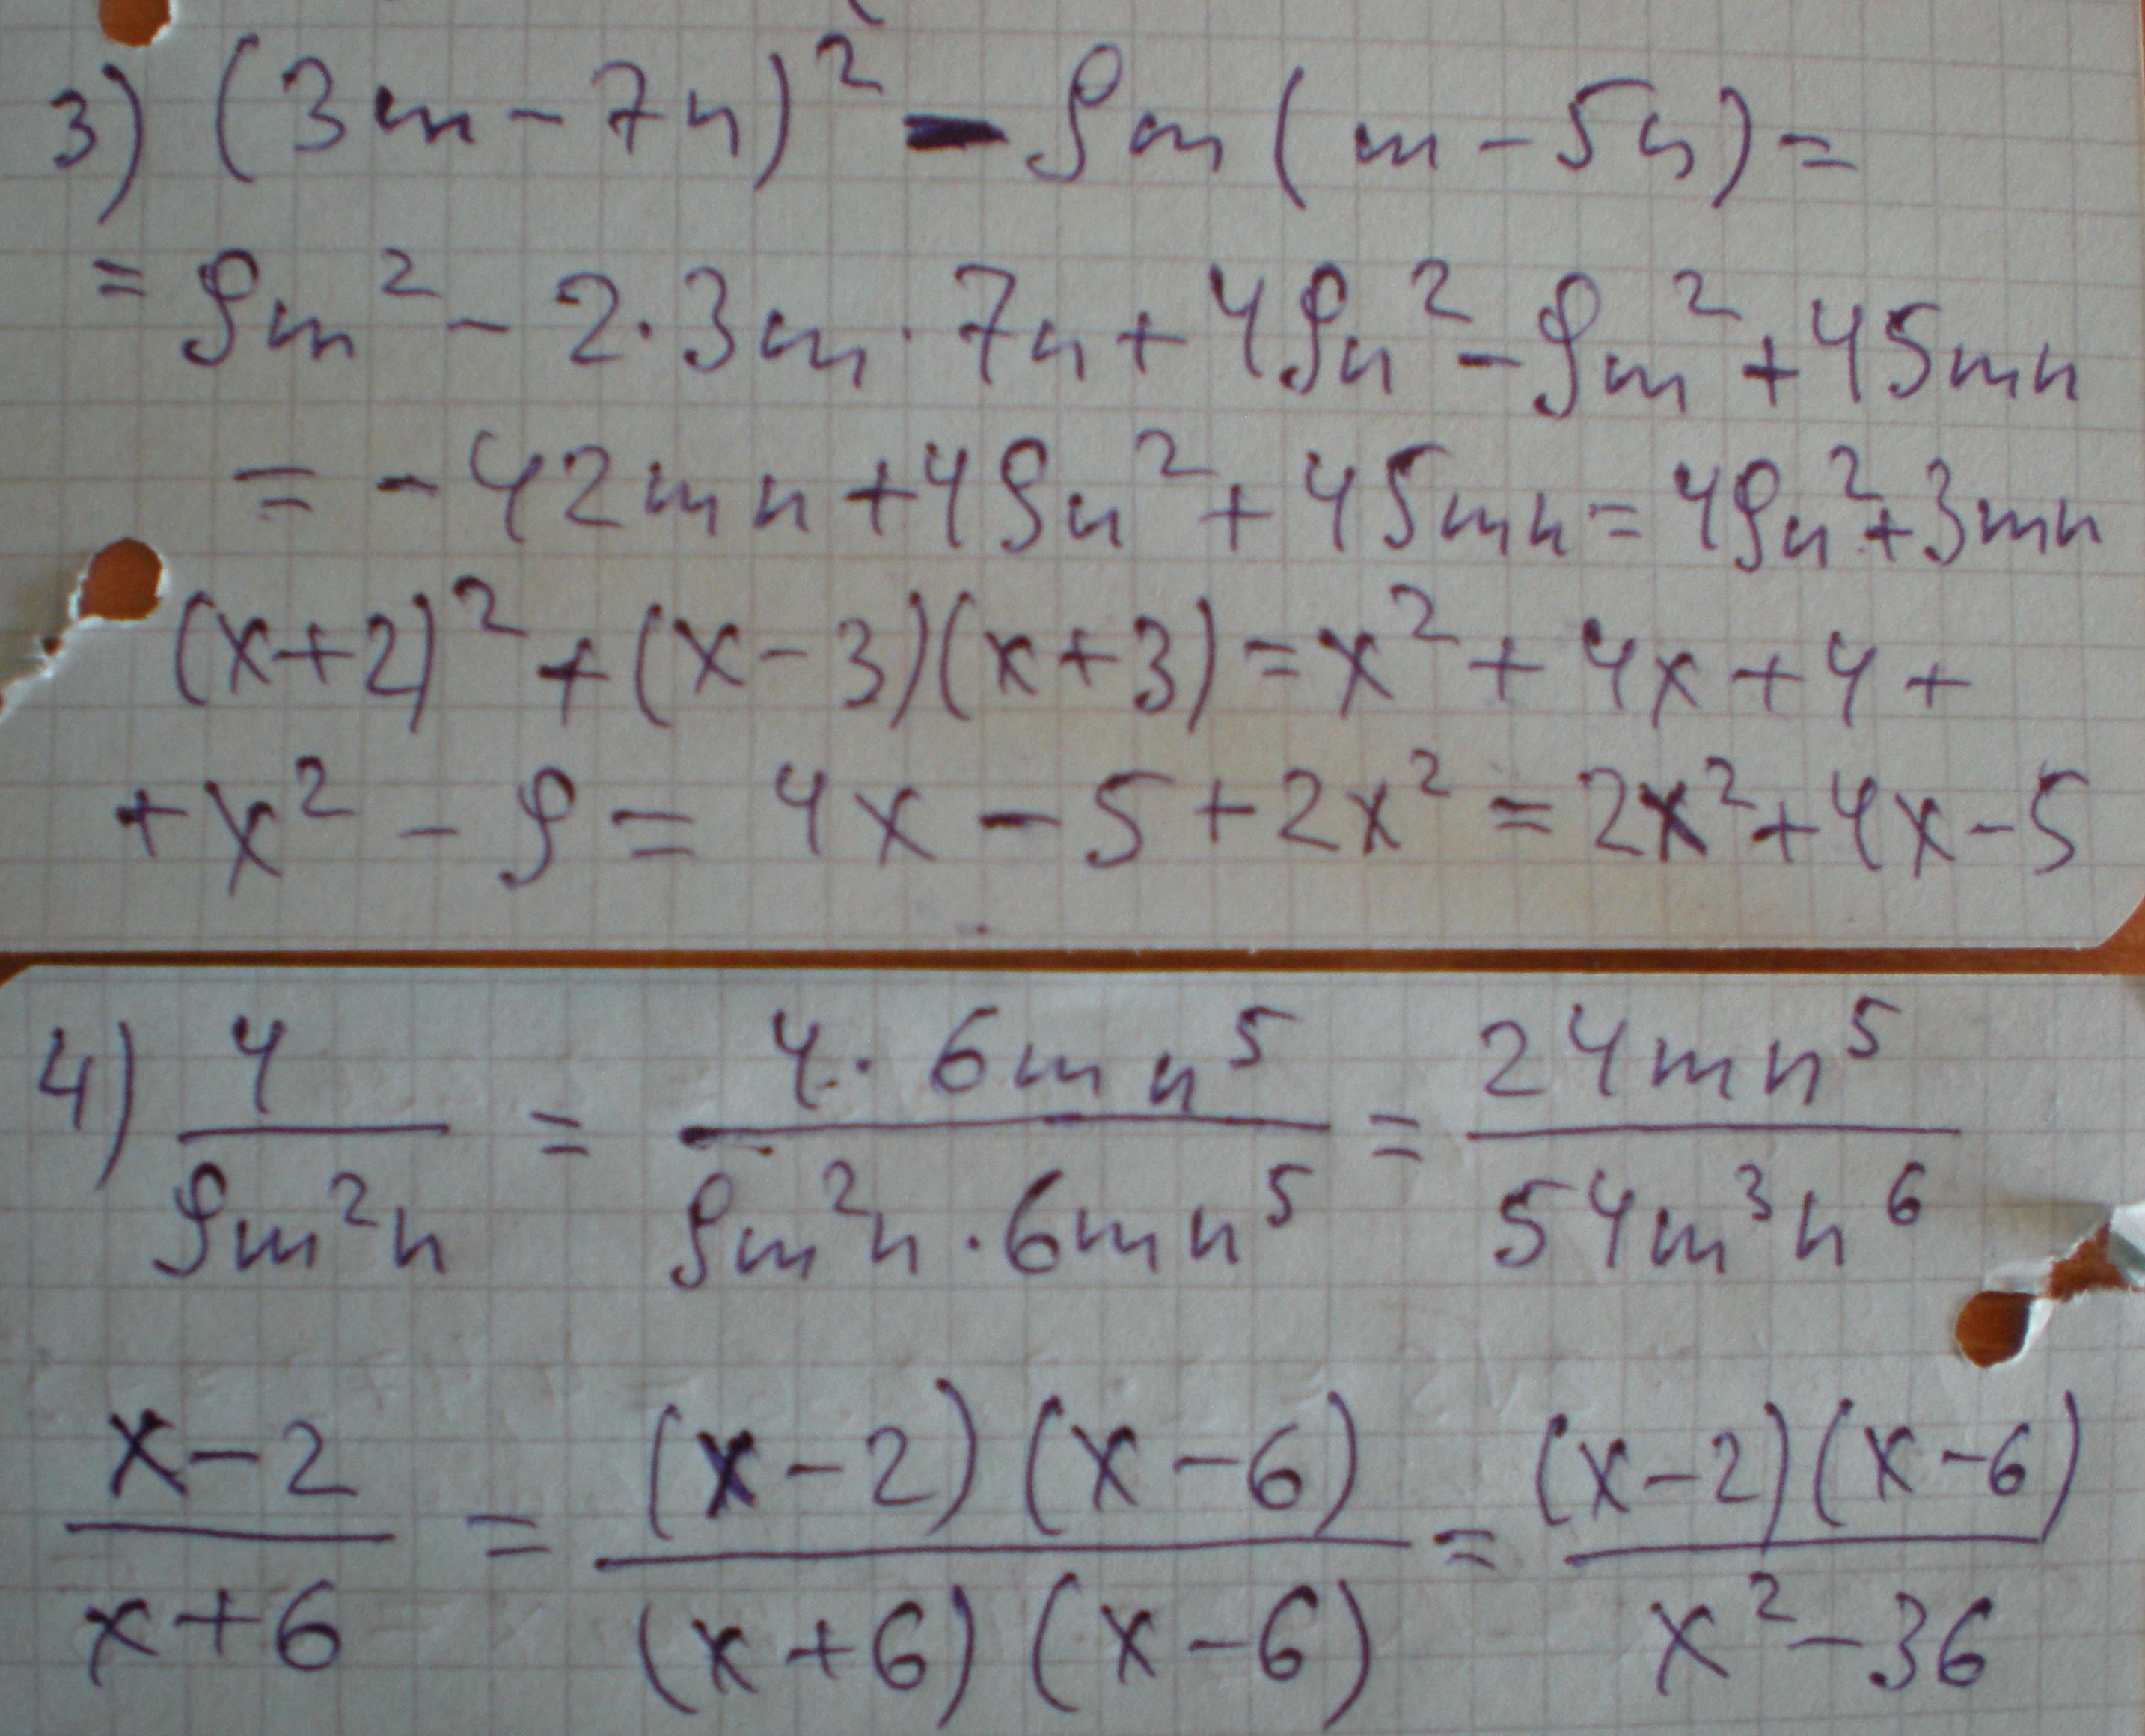 3) (3m-7n)² - 9m(m-5n)=
= 9m² - 2·3m·7n+49n²-9m²+45mn
= -42mn+49n²+45mn=49n²+3mn
(x+2)²+(x-3)(x+3)=x²+4x+4+
+x²-9=4x-5+2x²=2x²+4x-5
4) 4/9m²n = 4·6mn⁵/9m²n·6mn⁵ = 24mn⁵/54m³n⁶
x-2/x+6 = (x-2)(x-6)/(x+6)(x-6) = (x-2)(x-6)/x²-36